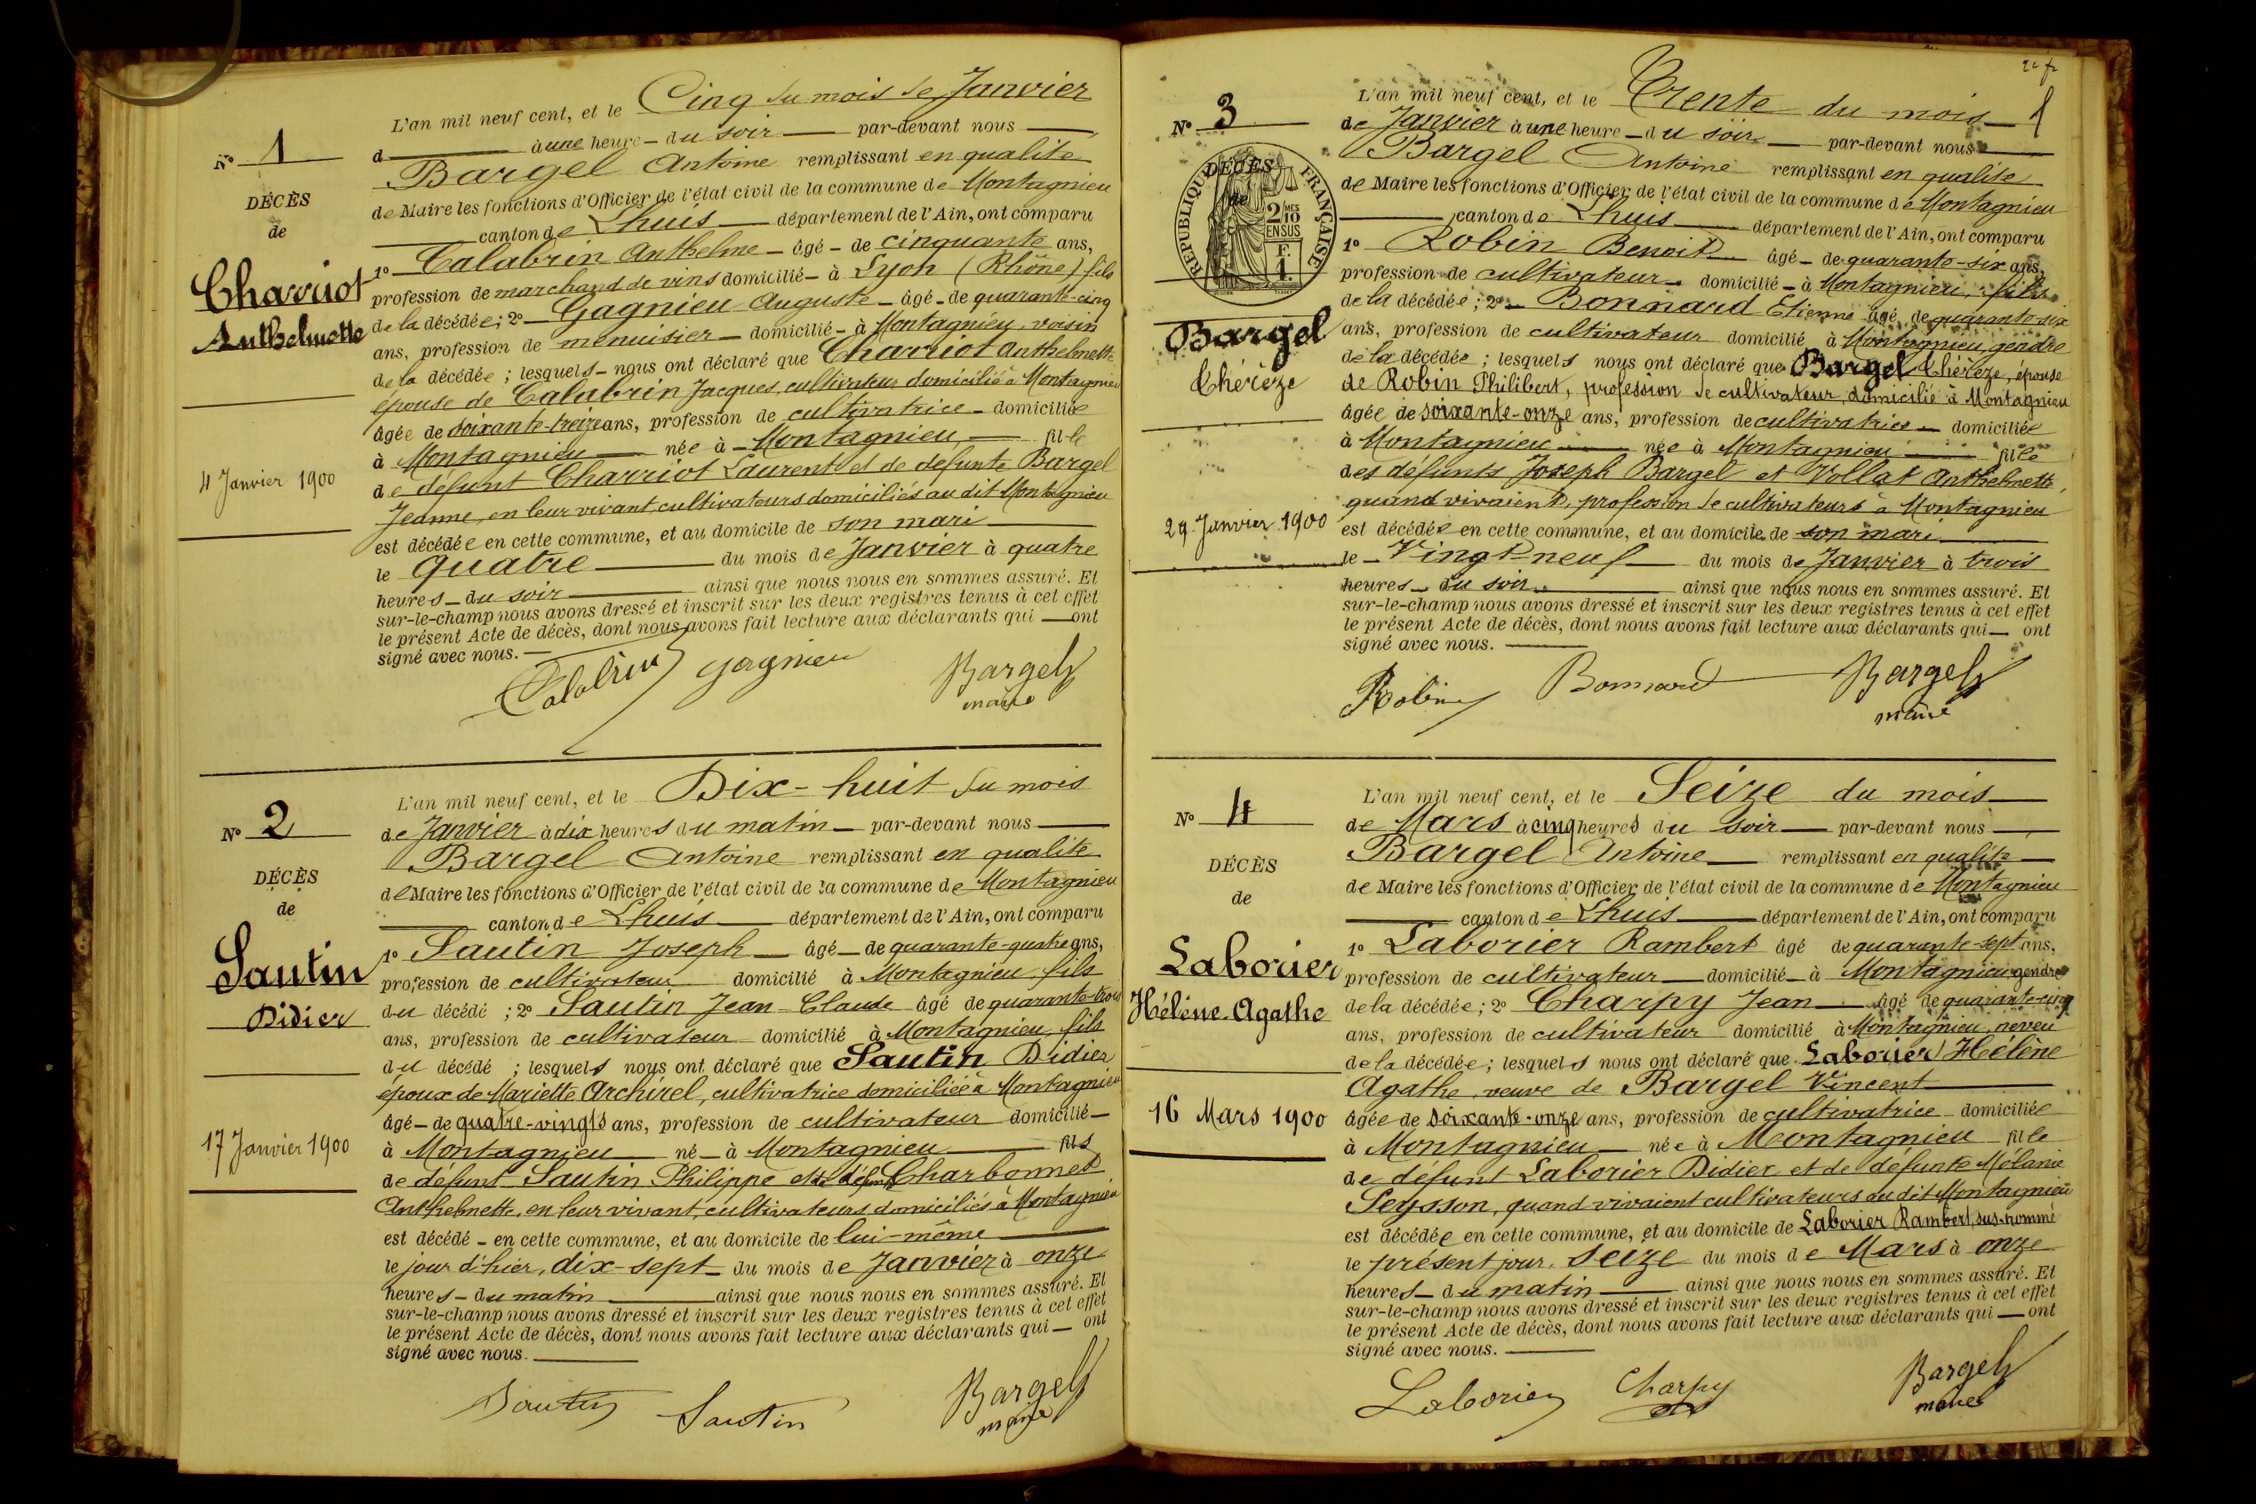 L'an mil neuf cent, et le Cinq du mois de Janvier
d à une heure du soir par-devant nous
Bargel Antoine remplissant en qualité
de Maire les fonctions d'Officier de l'état civil de la commune de Montagnieu
canton de Lhuis département de l'Ain, ont comparu
1º Calabrin Anthelme âgé de cinquante ans,
profession de marchand de vins domicilié à Lyon (Rhône) fils
de la décédée; 2º Gagnieu Auguste âgé de quarante-cinq
ans, profession de menuisier domicilié à Montagnieu, voisin
de la décédée; lesquels nous ont déclaré que Charriot Anthelmette
épouse de Calabrin Jacques, cultivateur domicilié à Montagnieu
âgée de soixante-treize ans, profession de cultivatrice domiciliée
à Montagnieu née à Montagnieu, fille
de défunt Charriot Laurent et de défunte Bargel
Jeanne, en leur vivant cultivateurs domiciliés au dit Montagnieu
est décédée en cette commune, et au domicile de son mari
le quatre du mois de Janvier à quatre
heures du soir ainsi que nous nous en sommes assuré. Et
sur-le-champ nous avons dressé et inscrit sur les deux registres tenus à cet effet
le présent Acte de décès, dont nous avons fait lecture aux déclarants qui ont
signé avec nous.
Calabrin Gagnieu Bargel
maire
Nº 1
DÉCÈS
de
Charriot
Anthelmette
4 Janvier 1900
L'an mil neuf cent, et le Dix-huit du mois
de Janvier à dix heures du matin par-devant nous
Bargel Antoine remplissant en qualité
de Maire les fonctions d'Officier de l'état civil de la commune de Montagnieu
canton de Lhuis département de l'Ain, ont comparu
1º Sautin Joseph âgé de quarante-quatre ans,
profession de cultivateur domicilié à Montagnieu, fils
du décédé; 2º Sautin Jean-Claude âgé de quarante-trois
ans, profession de cultivateur domicilié à Montagnieu, fils
du décédé; lesquels nous ont déclaré que Sautin Didier
époux de Mariette Archirel, cultivatrice domiciliée à Montagnieu
âgé de quatre-vingts ans, profession de cultivateur domicilié
à Montagnieu né à Montagnieu fils
de défunt Sautin Philippe et de défunte Charbonnet
Anthelmette, en leur vivant, cultivateurs domiciliés à Montagnieu
est décédé en cette commune, et au domicile de lui-même
le jour d'hier, dix-sept du mois de Janvier à onze
heures du matin ainsi que nous nous en sommes assuré. Et
sur-le-champ nous avons dressé et inscrit sur les deux registres tenus à cet effet
le présent Acte de décès, dont nous avons fait lecture aux déclarants qui ont
signé avec nous.
Sautin Sautin Bargel
maire
Nº 2
DÉCÈS
de
Sautin
Didier
17 Janvier 1900
L'an mil neuf cent, et le Trente du mois
de Janvier à une heure du soir par-devant nous
Bargel Antoine remplissant en qualité
de Maire les fonctions d'Officier de l'état civil de la commune de Montagnieu
canton de Lhuis département de l'Ain, ont comparu
1º Robin Benoit âgé de quarante-six ans,
profession de cultivateur domicilié à Montagnieu, fils
de la décédée; 2º Bonnard Etienne âgé de quarante-six
ans, profession de cultivateur domicilié à Montagnieu, gendre
de la décédée; lesquels nous ont déclaré que Bargel Thérèze, épouse
de Robin Philibert, profession de cultivateur, domicilié à Montagnieu
âgée de soixante-onze ans, profession de cultivatrice domiciliée
à Montagnieu née à Montagnieu fille
des défunts Joseph Bargel et Vollat Anthelmette,
quand vivaient, profession de cultivateurs à Montagnieu
est décédée en cette commune, et au domicile de son mari
le Vingt-neuf du mois de Janvier à trois
heures du soir ainsi que nous nous en sommes assuré. Et
sur-le-champ nous avons dressé et inscrit sur les deux registres tenus à cet effet
le présent Acte de décès, dont nous avons fait lecture aux déclarants qui ont
signé avec nous.
Robin Bonnard Bargel
maire
Nº 3
RÉPUBLIQUE FRANÇAISE
2/10 MES
EN SUS
F.
1
DÉCÈS
de
Bargel
Thérèze
29 Janvier 1900
L'an mil neuf cent, et le Seize du mois
de Mars à cinq heures du soir par-devant nous
Bargel Antoine remplissant en qualité
de Maire les fonctions d'Officier de l'état civil de la commune de Montagnieu
canton de Lhuis département de l'Ain, ont comparu
1º Laborier Rambert âgé de quarante-sept ans,
profession de cultivateur domicilié à Montagnieu gendre
de la décédée; 2º Charpy Jean âgé de quarante-cinq
ans, profession de cultivateur domicilié à Montagnieu, neveu
de la décédée; lesquels nous ont déclaré que Laborier Hélène
Agathe, veuve de Bargel Vincent
âgée de soixante-onze ans, profession de cultivatrice domiciliée
à Montagnieu née à Montagnieu fille
de défunt Laborier Didier et de défunte Mélanie
Seysson, quand vivaient cultivateurs au dit Montagnieu
est décédée en cette commune, et au domicile de Laborier Rambert, sus-nommé
le présent jour, Seize du mois de Mars à onze
heures du matin ainsi que nous nous en sommes assuré. Et
sur-le-champ nous avons dressé et inscrit sur les deux registres tenus à cet effet
le présent Acte de décès, dont nous avons fait lecture aux déclarants qui ont
signé avec nous.
Laborier Charpy Bargel
maire
Nº 4
DÉCÈS
de
Laborier
Hélène-Agathe
16 Mars 1900